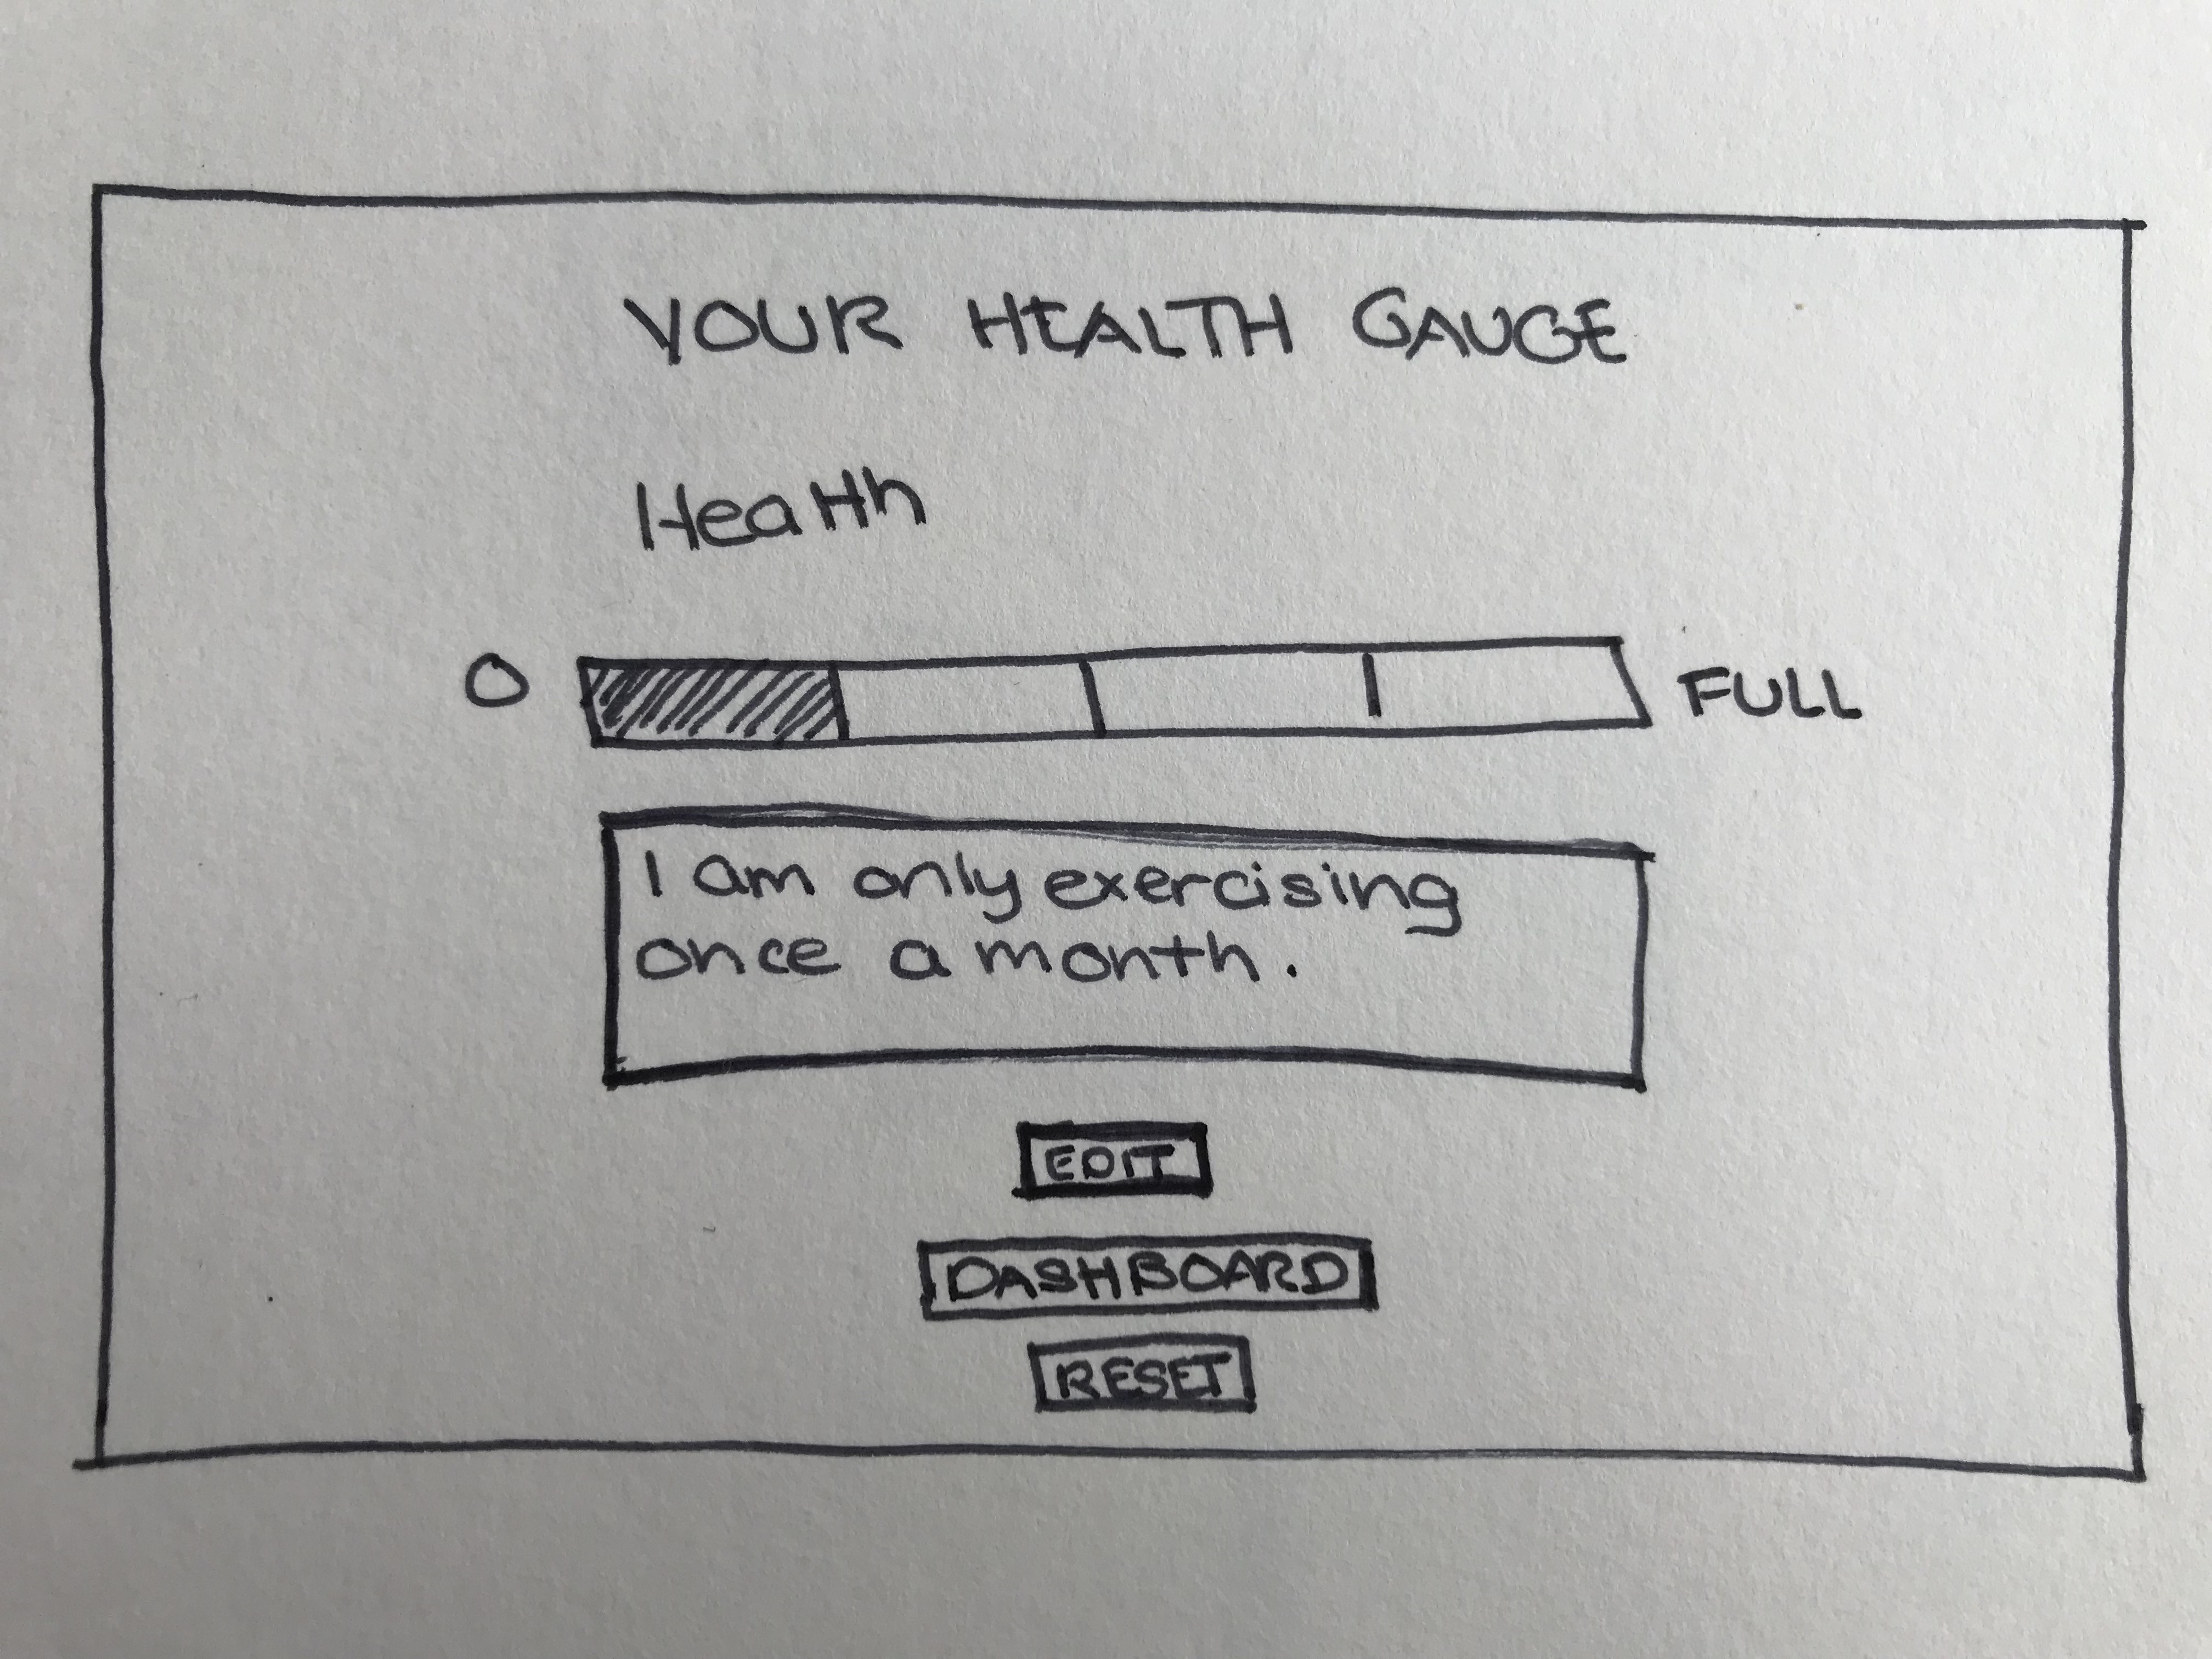 YOUR HEALTH GAUGE
Health
0 FULL
I am only exercising
once a month.
EDIT
DASHBOARD
RESET